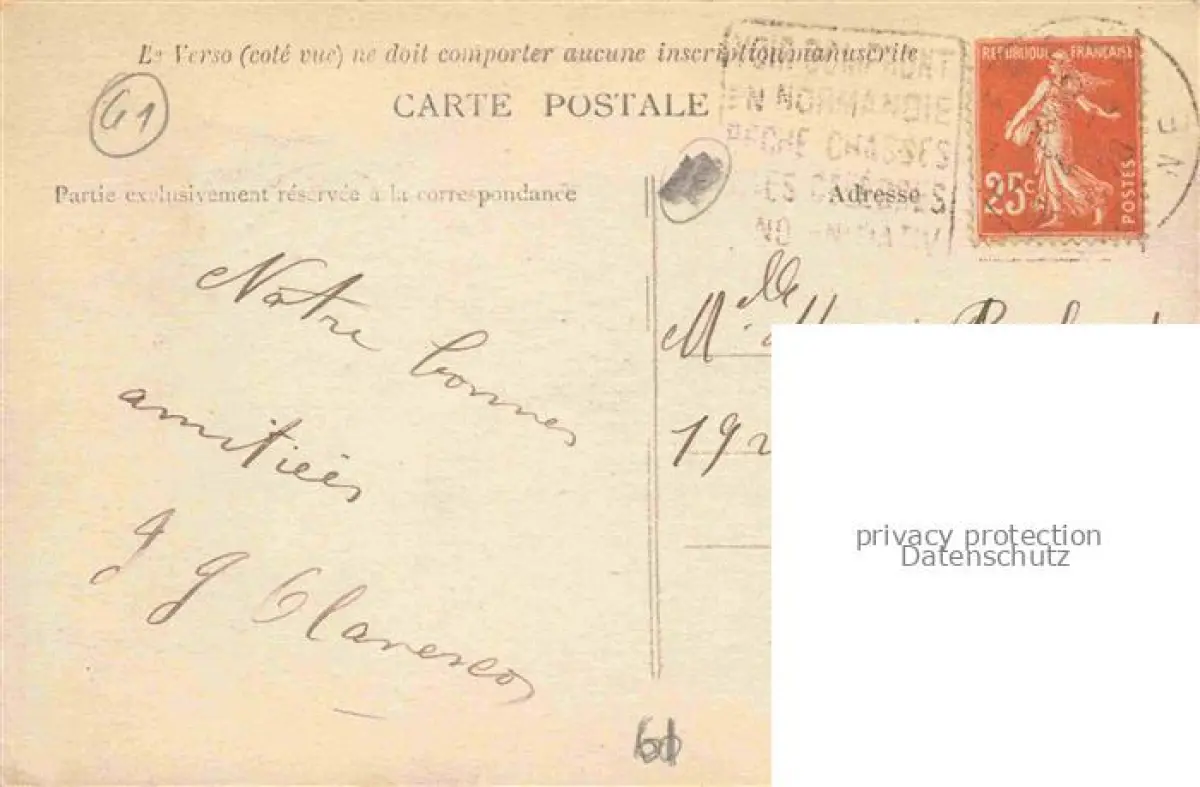 Le Verso (coté vue) ne doit comporter aucune inscription manuscrite
61
CARTE POSTALE
Partie exclusivement réservée à la correspondance
Adresse
EN NORMANDIE
REPUBLIQUE FRANÇAISE
25c
POSTES
NE
Notre bonnes
amitiées
J G
Mlle
192
privacy protection
Datenschutz
61